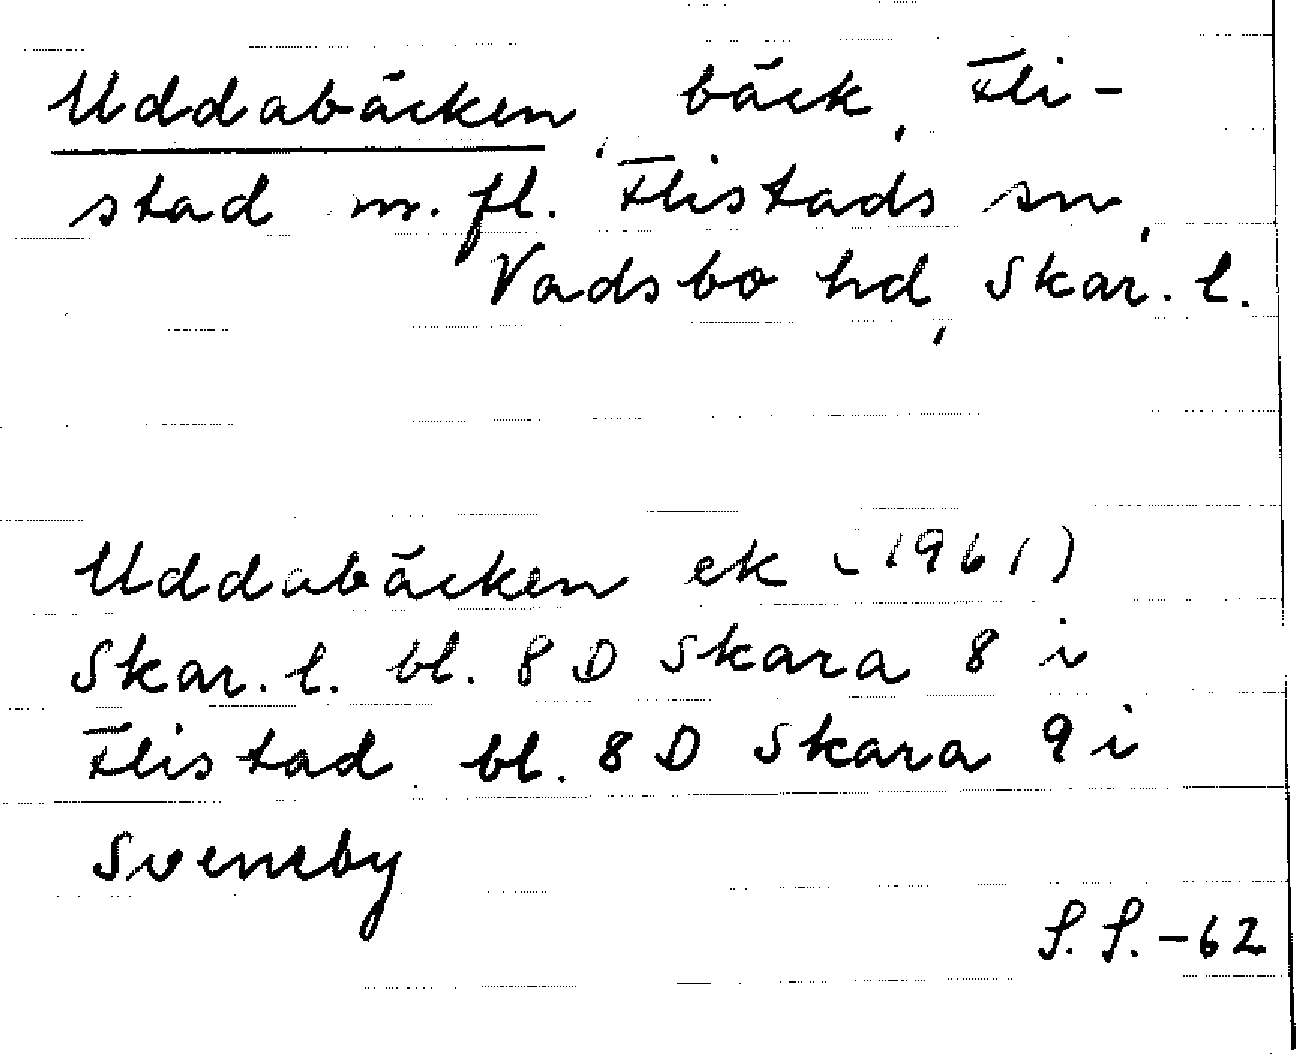 Uddabäcken, bäck, Fli-
stad m. fl. Flistads sn,
Vadsbo hd, Skar. l.
Uddabäcken ek (1961)
Skar. l. bl. 8 D Skara 8 i
Flistad, bl. 8 D Skara 9 i
Sveneby
S. S. -62